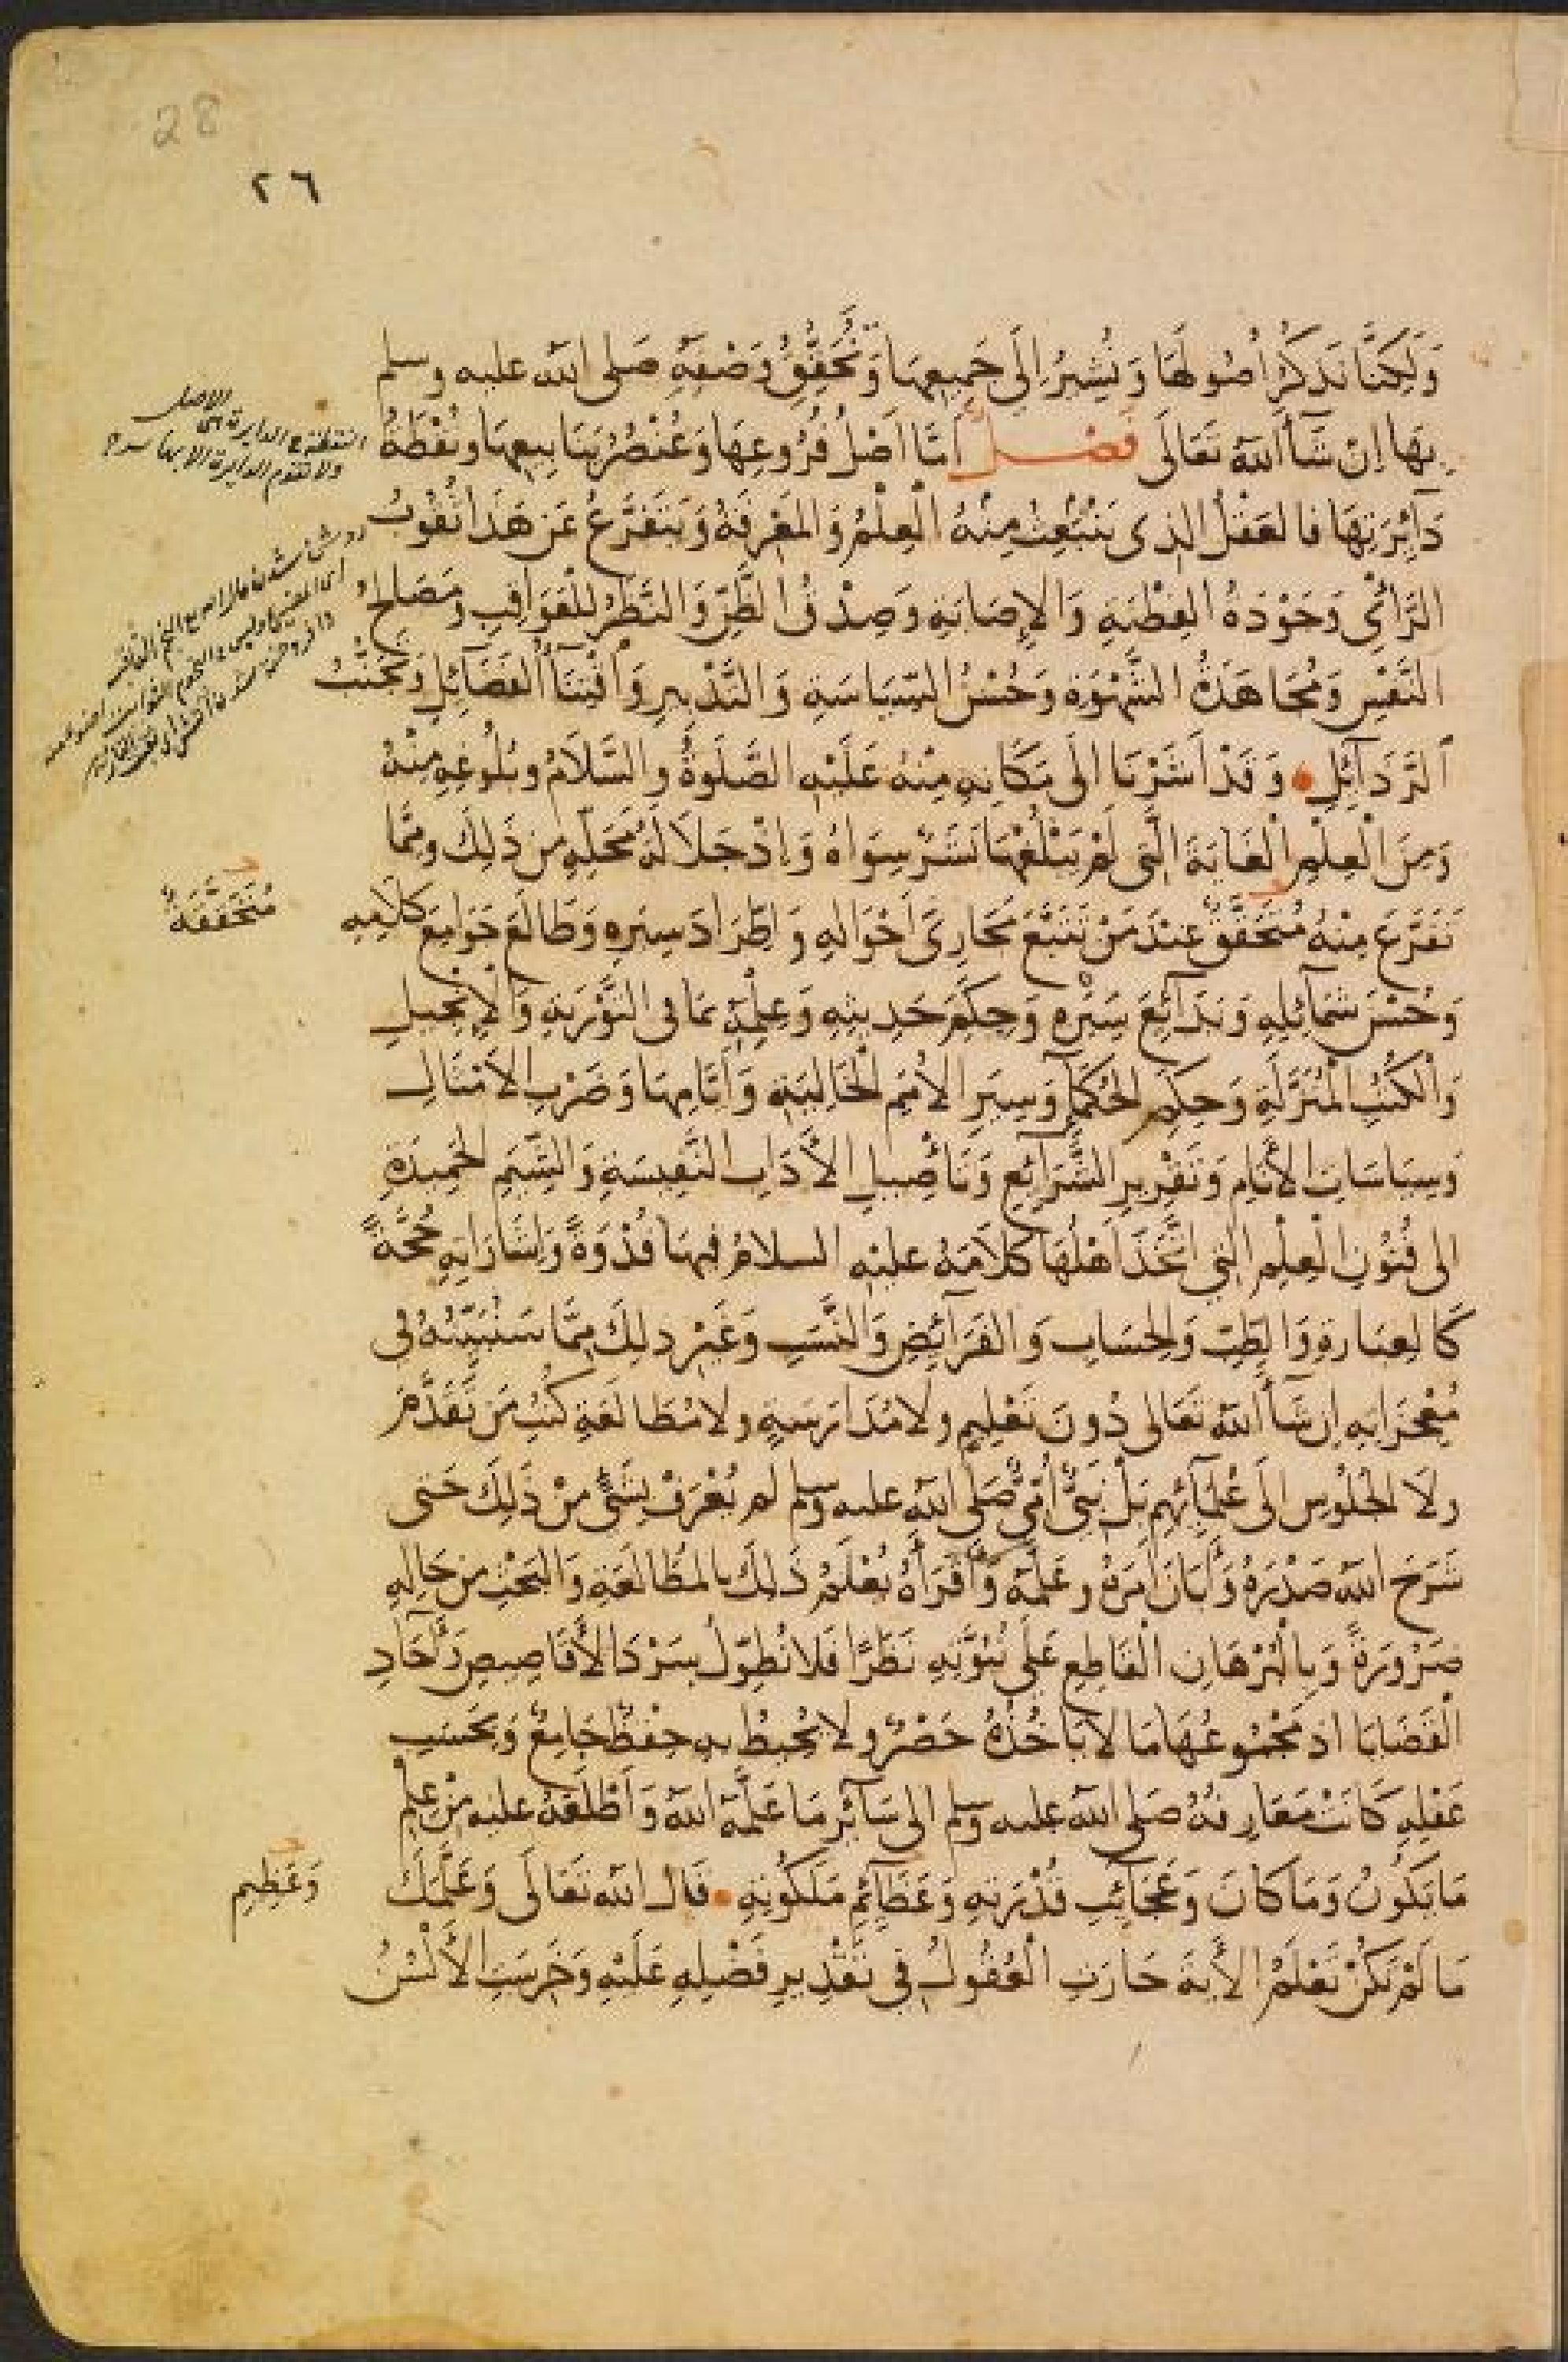 28
٢٦
وَلَكِنَّا نَذْكُرُ اُصُولَهَا وَنُشِيرُ اِلَى جَمِيعِهَا وَنُحَقِّقُ وَصْفَهُ صَلى الله عليه وسلم
بِهَا اِنْ شَآأَ اللهُ تَعَالَى فَصْلٌ اَمَّا اَصْلُ فُرُوعِهَا وَعُنْصُرُ يَنَابِيعِهَا وَنُقْطَةُ
دَآئِرَتِهَا فالعَقْلُ الذِى يَنْبَعِثُ مِنْهُ الْعِلْمُ وَالمَعْرِفَةُ وَيَتَفَرَّعُ عَنْ هَذَا ثُقُوبُ
الرَّائِ وَجَوْدَةُ الفِطْنَةِ وَالاِصَابَةِ وَصِدْقُ الظَّنِّ وَالنَّظَرُ لِلْعَوَاقِبِ وَمَصَالِحُ
النَّفْسِ وَمُجَاهَدَةُ الشَّهْوَةِ وَحُسْنُ السِّيَاسَةِ وَالتَّدْبِيرِ وَاقْتِنَآأُ الفَضَائِلِ وَتَجَنُّبُ
اَلرَّذَآئِلِ وَقَدْ اَشَرْنَا الَى مَكَانِهِ مِنْهُ عَلَيْهِ الصَّلَوةُ وَالسَّلَامُ وَبُلُوغِهِ مِنْهُ
وَمِنَ الْعِلْمِ الْغَايَةَ الَّتِى لَمْ يَبْلُغْهَا بَشَرٌ سِوَاهُ وَاِذْ جَلَالَةُ مَحَلِّهِ مِن ذَلِكَ وَمِمَّا
تَفَرَّعَ مِنْهُ مُتَحَقَّقٌ عِنْدَ مَنْ تَتَبَّعَ مَجَارِىَ اَحْوَالِهِ وَاطِّرَادَ سِيَرِهِ وَطَالَعَ جَوَامِعَ كَلَامِهِ
وَحُسْنَ شَمَآئِلِهِ وَبَدَآئِعَ سِيَرِهِ وَحِكَمَ حَدِيثِهِ وَعِلْمَهُ بِمَا فى التَّوْرَيةِ وَالْاِنْجِيلِ
وَالْكُتُبِ الْمُنَزَّلَةِ وَحِكَمِ الحُكَمَآءِ وَسِيَرِ الاُمَمِ الْخَالِيَةِ وَاَيَّامِهَا وَضَرْبِ الاَمْثَالِ
وَسِيَاسَاتِ الأَنَامِ وَتَقْرِيرِ الشَّرَآئِعِ وَتَأصِيلِ الاَّدَابِ النَّفِيسَةِ وَالشِّيَمِ الحَمِيدَةِ
الى فُنُونِ الْعِلْمِ الَّتِى اتَّخَذَ اَهْلُهَا كَلَامَهُ عليْهِ السلامُ فِيهَا قُدْوَةً وَاِشَارَاتِهِ حُجَّةً
كَالعِبَارةِ وَالطِّبِّ وَالحِسَابِ وَالفَرَآئِضِ وَالنَّسَبِ وَغَيْرِ ذلِكَ مِمَّا سَنُبَيِّنُهُ فى
مُعْجِزَاتِهِ اِن شَآأَ اللهُ تَعَالى دُونَ تَعْلِيمٍ ولا مُدَارَسَةٍ ولا مُطَالَعَةِ كُتُبِ مَن تَقَدَّمَ
ولَا الجُلُوسِ الَى عُلَمَآئِهِم بَلْ نَبِىٌّ اُمِّىٌّ صَلى اللهُ عليه وسلم لم يُعْرَفْ بِشَىْءٍ مِنْ ذَلِكَ حَتى
شَرَحَ اللهُ صَدْرَهُ وَاَبَانَ اَمْرَهُ وعَلَّمَهُ وَاَقْرَأَهُ يُعْلَمُ ذَلِكَ بِالمُطَالَعَةِ وَالبَحْثِ مِن حَالِهِ
ضَرُورَةً وَبِالْبُرْهَانِ القَاطِعِ عَلَى نُبُوَّتِهِ نَظَرًا فَلَا نُطَوِّلُ بِسَرْدِ الاَقَاصِيصِ وَآحَادِ
الْقَضَايَا اذ مَجْمُوعُهَا مَا لَا يَأخُذُهُ حَصْرٌ ولا يُحِيطُ بِهِ حِفْظٌ جَامِعٌ وَبِحَسَبِ
عَقْلِهِ كَانَتْ مَعَارِفُهُ صَلى اللهُ عليه وسلم الى سَآئِرِ مَا عَلَّمَهُ اللهُ وَاَطْلَعَهُ عليه مِنْ عِلْمِ
مَا يَكُونُ وَمَا كَانَ وَعَجَآئِبِ قُدْرَتِهِ وَعَظَآئِمِ مَلَكُوتِهِ قَالَ اللهُ تَعَالَى وَعَلَّمَكَ
مَا لَمْ تَكُنْ تَعْلَمُ الاَيةَ حَارَتِ الْعُقُولُ فِى تَقْدِيرِ فَضْلِهِ عَلَيْهِ وَخَرِسَتِ الاَلْسُنُ
الاصل
النقطة الدايرة هى
ولا تقوم الدايرة الا بها
مُتَحَقَّقَةٌ
وَعَظِيمِ